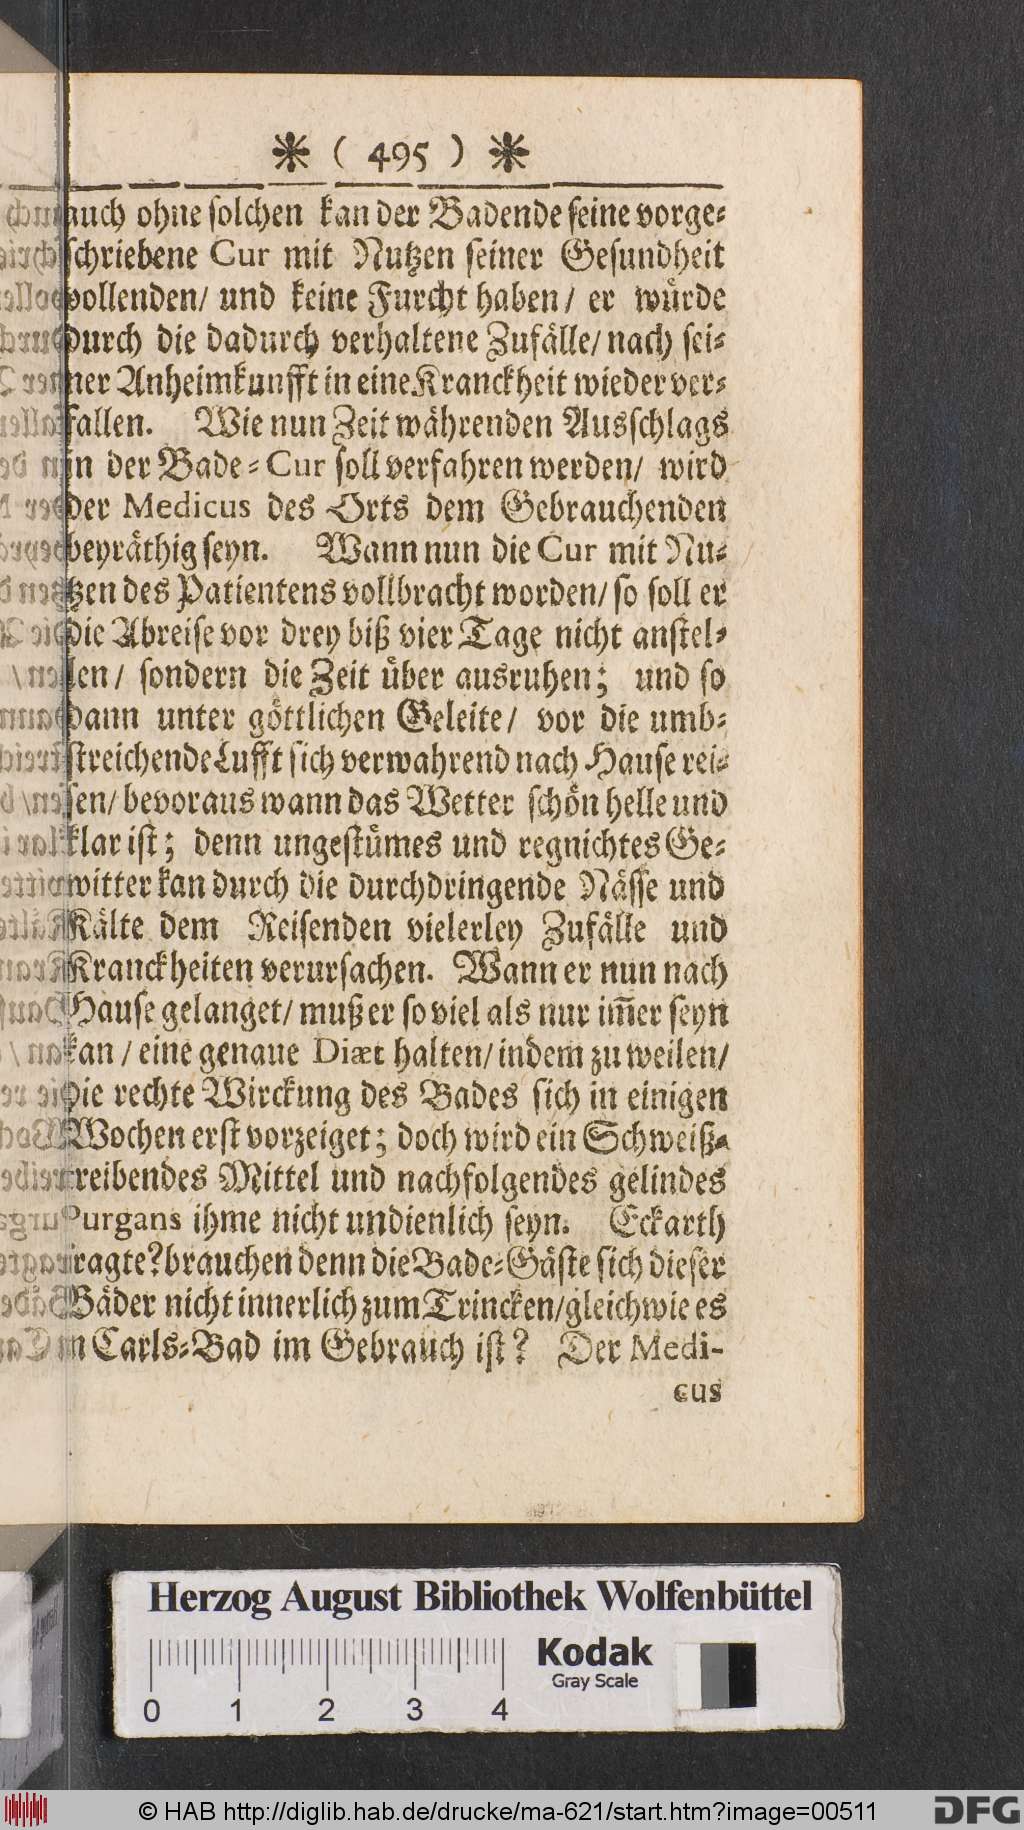 * ( 495 ) *
auch ohne solchen kan der Badende seine vorge-
schriebene Cur mit Nutzen seiner Gesundheit
vollenden/ und keine Furcht haben/ er würde
durch die dadurch verhaltene Zufälle/ nach sei-
ner Anheimkunfft in eine Kranckheit wieder ver-
fallen. Wie nun Zeit währenden Ausschlags
in der Bade-Cur soll verfahren werden/ wird
der Medicus des Orts dem Gebrauchenden
beyräthig seyn. Wann nun die Cur mit Nu-
tzen des Patientens vollbracht worden/ so soll er
die Abreise vor drey biß vier Tage nicht anstel-
len/ sondern die Zeit über ausruhen; und so
dann unter göttlichen Geleite/ vor die umb-
streichende Lufft sich verwahrend nach Hause rei-
sen/ bevoraus wann das Wetter schön helle und
klar ist; denn ungestümes und regnichtes Ge-
witter kan durch die durchdringende Nässe und
Kälte dem Reisenden vielerley Zufälle und
Kranckheiten verursachen. Wann er nun nach
Hause gelanget/ muß er so viel als nur im̃er seyn
kan / eine genaue Diæt halten/ indem zu weilen/
die rechte Wirckung des Bades sich in einigen
Wochen erst vorzeiget; doch wird ein Schweiß-
treibendes Mittel und nachfolgendes gelindes
Purgans ihme nicht undienlich seyn. Eckarth
fragte? brauchen denn die Bade-Gäste sich dieser
Bäder nicht innerlich zum Trincken/ gleichwie es
in Carls-Bad im Gebrauch ist? Der Medi-
cus
Herzog August Bibliothek Wolfenbüttel
Kodak
Gray Scale
0 1 2 3 4
© HAB http://diglib.hab.de/drucke/ma-621/start.htm?image=00511
DFG